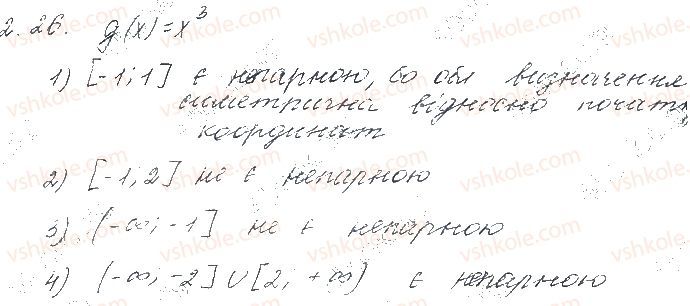 2.26. g(x)=x³
1) [-1;1] є непарною, бо обл визначення
симетрична відносно почат
координат
2) [-1;2] не є непарною
3) (-∞;-1] не є непарною
4) (-∞,-2]∪[2,+∞) є непарною